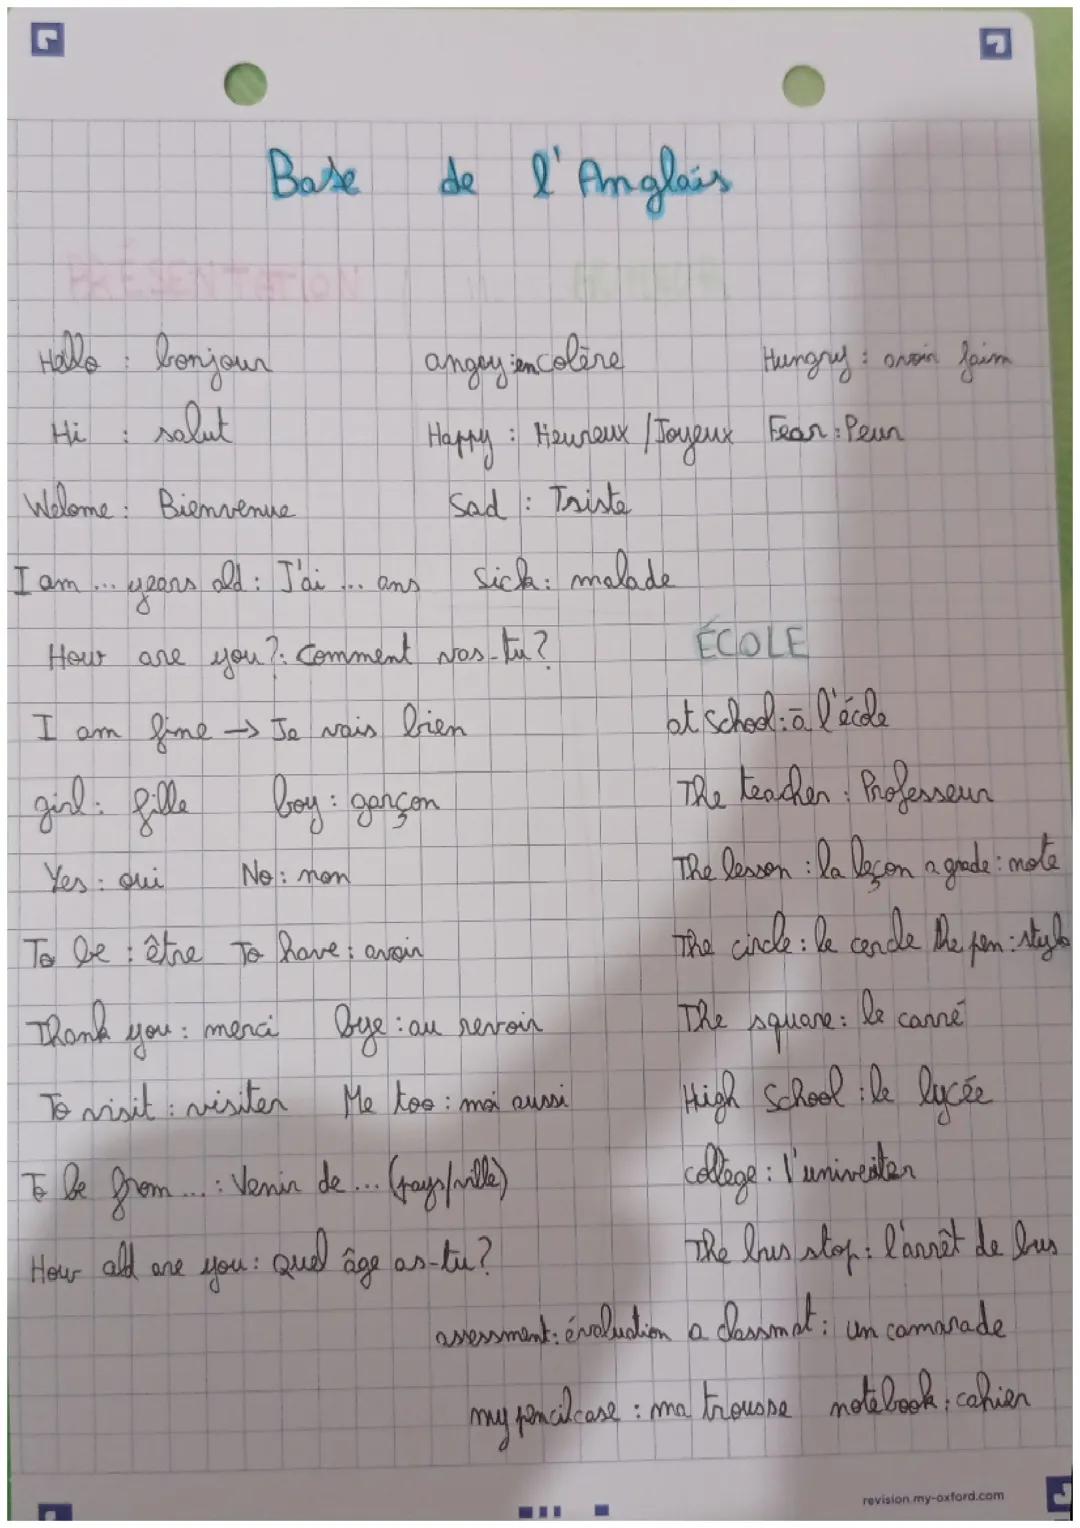 Base de l'Anglais
PRÉSENTATION
Hello : bonjour
Hi : salut
Welome : Bienvenue
I am ... years old : J'ai ... ans
How are you ? : Comment vas-tu ?
I am fine → Je vais bien
girl : fille boy : garçon
Yes : oui No : non
To be : être To have : avoir
Thank you : merci bye : au revoir
To visit : visiter Me too : moi aussi
To be from ... : Venir de ... (pays/ville)
How old are you : Quel âge as-tu ?
angey : en colère Hungry : avoir faim
Happy : Heureux / Joyeux Fear : Peur
Sad : Triste
Sick : malade
ÉCOLE
at school : à l'école
The teacher : Professeur
The lesson : la leçon a grade : note
The circle : le cercle the pen : stylo
The square : le carré
High School : le lycée
collège : l'univeriter
The bus stop : l'arrêt de bus
assessment : évaluation a classmat : un camarade
my pencilcase : ma trousse notebook : cahier
revision.my-oxford.com